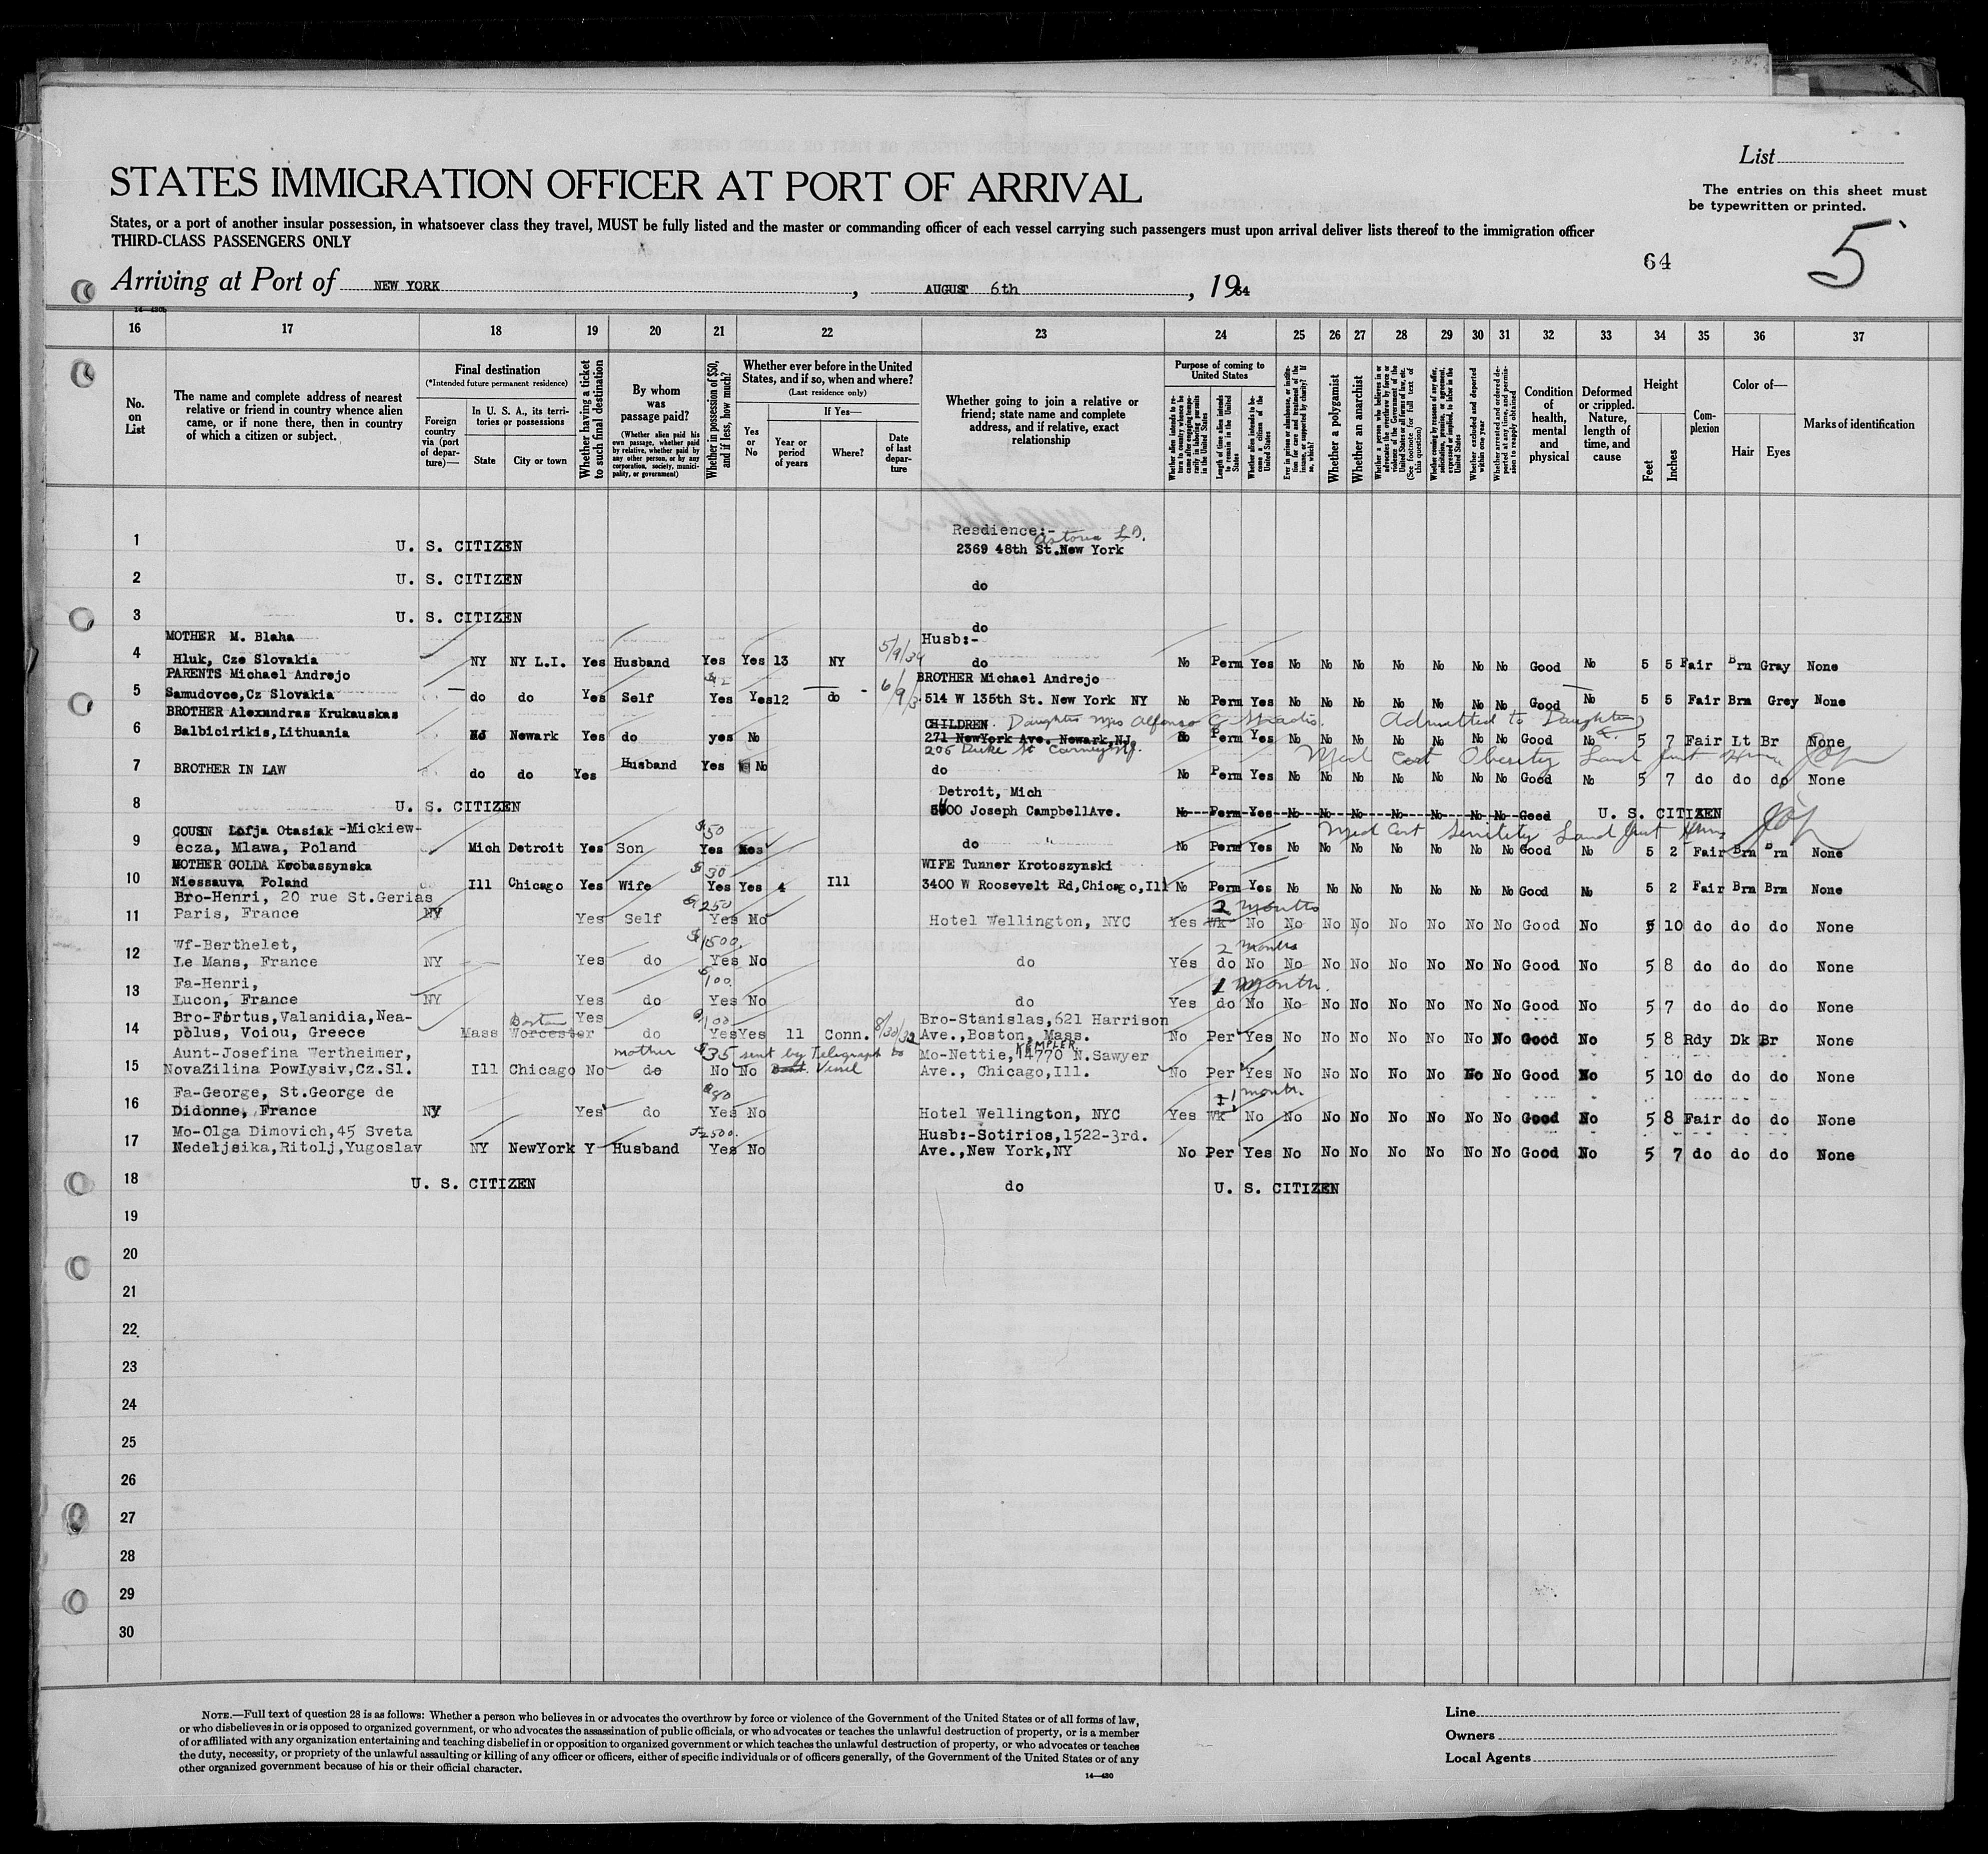 List
STATES IMMIGRATION OFFICER AT PORT OF ARRIVAL
The entries on this sheet must
be typewritten or printed.
States, or a port of another insular possession, in whatsoever class they travel, MUST be fully listed and the master or commanding officer of each vessel carrying such passengers must upon arrival deliver lists thereof to the immigration officer
THIRD-CLASS PASSENGERS ONLY
64
5
Arriving at Port of NEW YORK, AUGUST 6th, 1934
14—430b
16 17 18 19 20 21 22 23 24 25 26 27 28 29 30 31 32 33 34 35 36 37
No. on List
The name and complete address of nearest relative or friend in country whence alien came, or if none there, then in country of which a citizen or subject.
Final destination
(*Intended future permanent residence)
Foreign country via (port of departure)—
In U. S. A., its territories or possessions
State
City or town
Whether having a ticket to such final destination
By whom was passage paid?
(Whether alien paid his own passage, whether paid by relative, whether paid by any other person, or by any corporation, society, municipality, or government)
Whether in possession of $50, and if less, how much?
Whether ever before in the United States, and if so, when and where?
(Last residence only)
Yes or No
If Yes—
Year or period of years
Where?
Date of last departure
Whether going to join a relative or friend; state name and complete address, and if relative, exact relationship
Purpose of coming to United States
Length of time alien intends to remain in the United States
Whether alien intends to become a citizen of the United States
Whether a polygamist
Whether an anarchist
Condition of health, mental and physical
Deformed or crippled. Nature, length of time, and cause
Height
Feet
Inches
Complexion
Color of—
Hair
Eyes
Marks of identification
Resdience:-
Astoria L.I.
1 U. S. CITIZEN 2369 48th St.New York
2 U. S. CITIZEN do
3 U. S. CITIZEN do
MOTHER M. Blaha 5/9/34 Husb:-
4 Hluk, Cze Slovakia NY NY L.I. Yes Husband Yes Yes 13 NY do No Perm Yes No No No No No No No Good No 5 5 Fair Brn Gray None
PARENTS Michael Andrejo BROTHER Michael Andrejo
5 Samudovce,Cz Slovakia do do Yes Self Yes Yes 12 do 514 W 135th St. New York NY No Perm Yes No No No No No No No Good No 5 5 Fair Brn Grey None
BROTHER Alexandras Krukauskas CHILDREN. Daughter Mrs Alfonso Admitted to Daughter
6 Balbicirikis,Lithuania NJ Newark Yes do yes No 271 NewYork Ave. Newark,NJ. No Perm Yes No No No No No No No Good No 5 7 Fair Lt Br None
206 Duke St
Med Cert Obesity
7 BROTHER IN LAW do do Yes Husband Yes No do No Perm Yes No No No No No No No Good No 5 7 do do do None
Detroit, Mich
8 U. S. CITIZEN 5400 Joseph CampbellAve. No Perm Yes No No No No No No No Good U. S. CITIZEN
COUSN Lofja Otasiak -Mickiew- $50 Med Cert Senility
9 ecza, Mlawa, Poland Mich Detroit Yes Son Yes Yes do " No Perm Yes No No No No No No No Good No 5 2 Fair Brn Brn None
MOTHER GOLDA Krobassynska $30 WIFE Tunner Krotoszynski
10 Niessauva Poland Ill Chicago Yes Wife Yes Yes 4 Ill 3400 W Roosevelt Rd,Chicago,Ill No Perm Yes No No No No No No No Good No 5 2 Fair Brn Brn None
Bro-Henri, 20 rue St.Gerias $250 2 months
11 Paris, France NY Yes Self Yes No Hotel Wellington, NYC Yes Wk No No No No No No No No Good No 5 10 do do do None
Wf-Berthelet, $1500. 2 months
12 Le Mans, France NY Yes do Yes No do Yes do No No No No No No No No Good No 5 8 do do do None
Fa-Henri, $100. 1 month.
13 Lucon, France NY Yes do Yes No do Yes do No No No No No No No No Good No 5 7 do do do None
Bro-Fortus,Valanidia,Nea- Boston Yes $100 Bro-Stanislas,621 Harrison
14 polus, Voiou, Greece Mass Worcester do Yes Yes 11 Conn. 8/30/32 Ave.,Boston, Mass. No Per Yes No No No No No No No Good No 5 8 Rdy Dk Br None
Aunt-Josefina Wertheimer, mother $35 sent by Telegraph to Vessel Mo-Nettie, KEMPLER 4770 N.Sawyer
15 NovaZilina Powlysiv,Cz.Sl. Ill Chicago No do No No Ave., Chicago,Ill. No Per Yes No No No No No No No Good No 5 10 do do do None
Fa-George, St.George de $80 1 month.
16 Didonne, France NY Yes do Yes No Hotel Wellington, NYC Yes Wk No No No No No No No No Good No 5 8 Fair do do None
Mo-Olga Dimovich,45 Sveta $2500. Husb:-Sotirios,1522-3rd.
17 Nedeljsika,Ritolj,Yugoslav NY NewYork Y Husband Yes No Ave.,New York,NY No Per Yes No No No No No No No Good No 5 7 do do do None
18 U. S. CITIZEN do U. S. CITIZEN
19
20
21
22
23
24
25
26
27
28
29
30
NOTE.—Full text of question 28 is as follows: Whether a person who believes in or advocates the overthrow by force or violence of the Government of the United States or of all forms of law,
or who disbelieves in or is opposed to organized government, or who advocates the assassination of public officials, or who advocates or teaches the unlawful destruction of property, or is a member
of or affiliated with any organization entertaining and teaching disbelief in or opposition to organized government or which teaches the unlawful destruction of property, or who advocates or teaches
the duty, necessity, or propriety of the unlawful assaulting or killing of any officer or officers, either of specific individuals or of officers generally, of the Government of the United States or of any
other organized government because of his or their official character.
14—430
Line
Owners
Local Agents